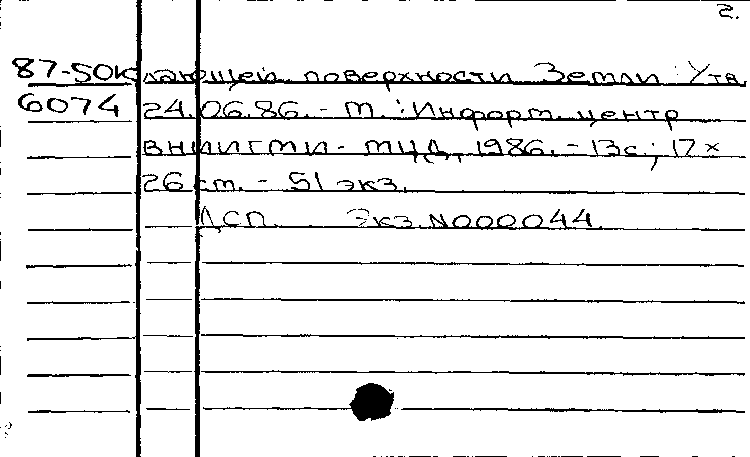 2.
87-50к лающей поверхности Земли: Утв.
6074 24.06.86. - М.: Информ. центр
ВНИИГМИ - МЦД, 1986. - 13с.; 17×
26 см. - 51 экз.
ДСП. Экз. N000044.